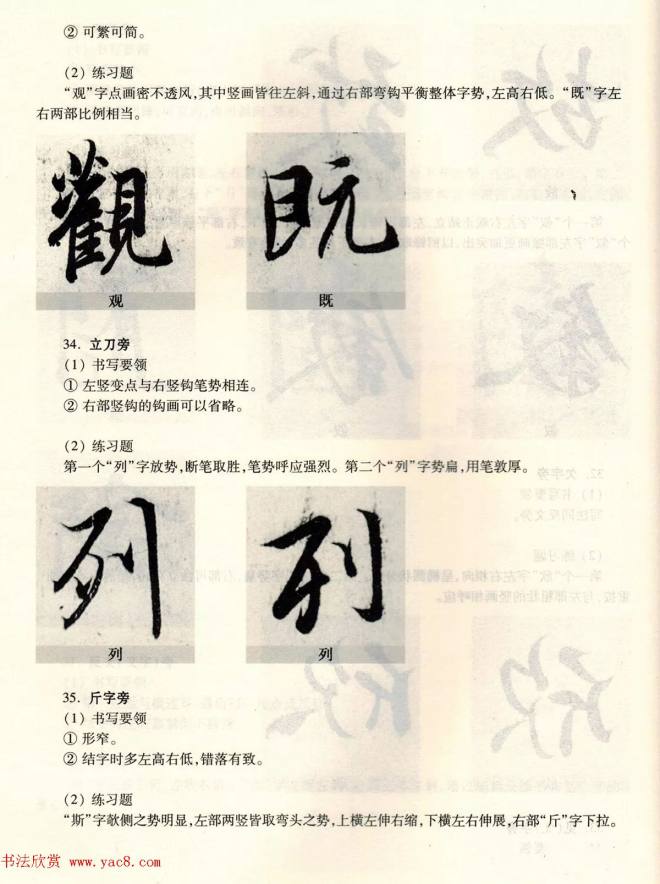 ② 可繁可简。
(2) 练习题
“观”字点画密不透风，其中竖画皆往左斜，通过右部弯钩平衡整体字势，左高右低。“既”字左
右两部比例相当。
觀 既
观 既
34. 立刀旁
(1) 书写要领
① 左竖变点与右竖钩笔势相连。
② 右部竖钩的钩画可以省略。
(2) 练习题
第一个“列”字放势，断笔取胜，笔势呼应强烈。第二个“列”字势扁，用笔敦厚。
列 列
列 列
35. 斤字旁
(1) 书写要领
① 形窄。
② 结字时多左高右低，错落有致。
(2) 练习题
“斯”字欹侧之势明显，左部两竖皆取弯头之势，上横左伸右缩，下横左右伸展，右部“斤”字下拉。
书法欣赏 www.yac8.com
81